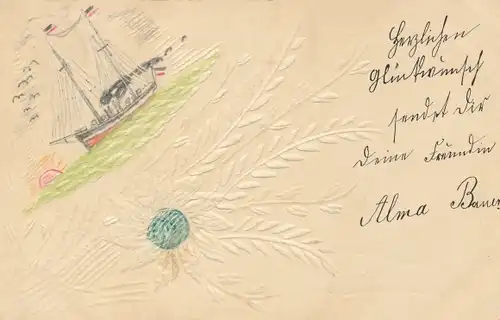 Herzlichen
Glückwunsch
sendet Dir
Deine Freundin
Alma